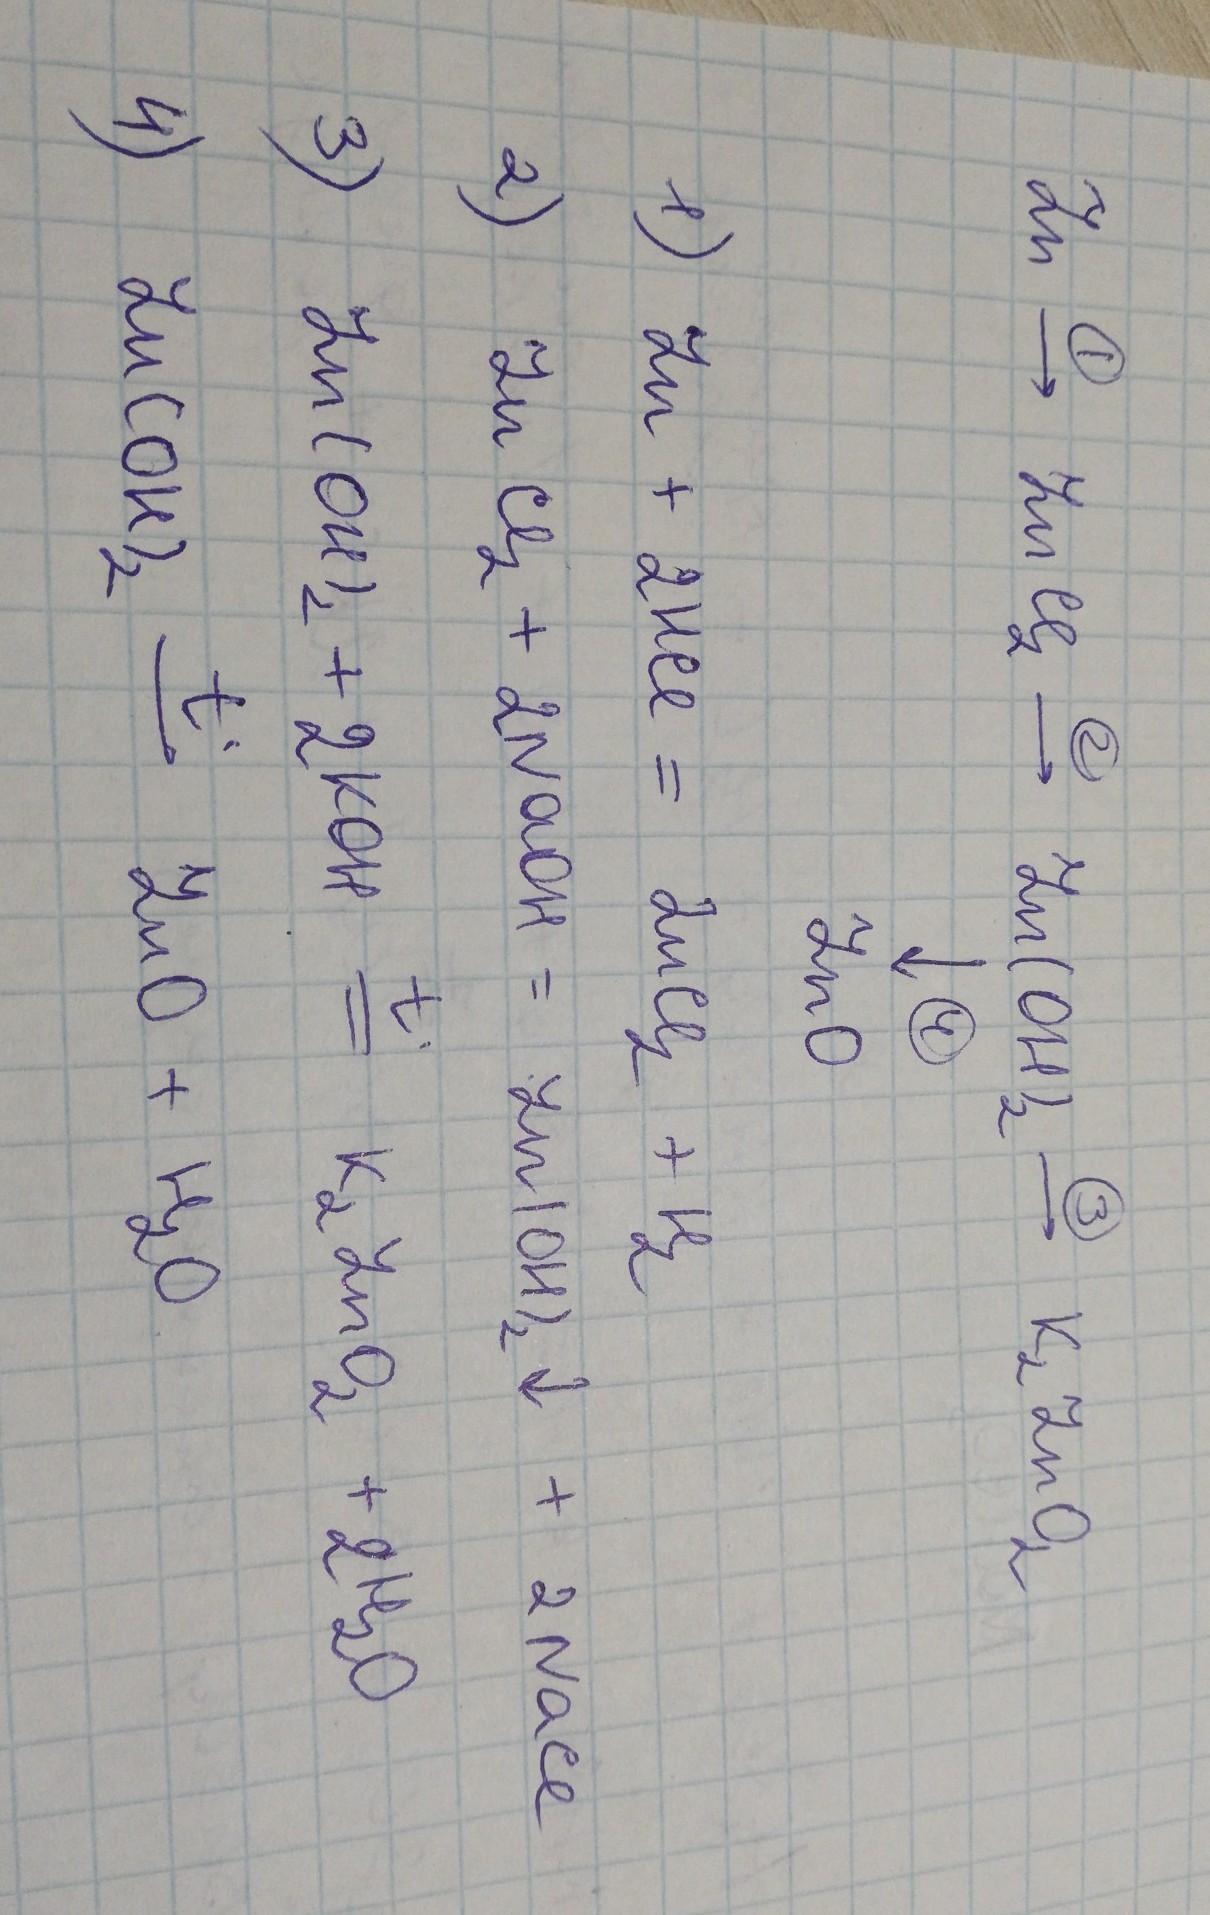 Zn →① ZnCl₂ →② Zn(OH)₂ →③ K₂ZnO₂
↓④
ZnO
1) Zn + 2HCl = ZnCl₂ + H₂
2) ZnCl₂ + 2NaOH = Zn(OH)₂↓ + 2NaCl
3) Zn(OH)₂ + 2KOH =t° K₂ZnO₂ + 2H₂O
4) Zn(OH)₂ →t° ZnO + H₂O